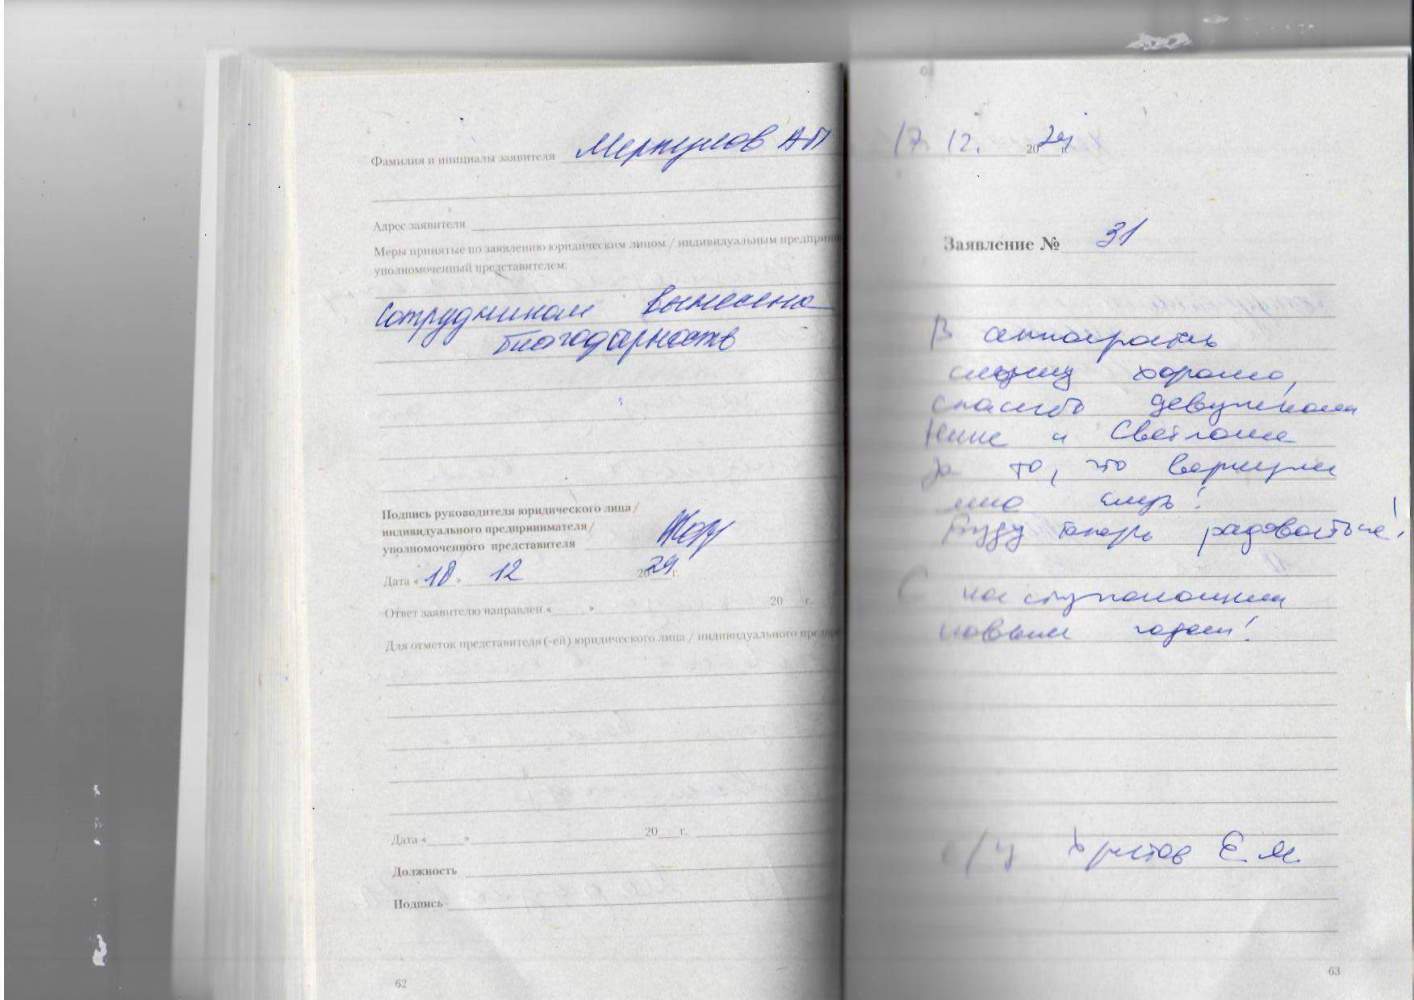 Фамилия и инициалы заявителя Меркулов АП
Адрес заявителя
Меры принятые по заявлению юридическим лицом / индивидуальным
уполномоченный представителем:
Сотрудникам вынесена
благодарность
Подпись руководителя юридического лица/
индивидуального предпринимателя/
уполномоченного представителя
Дата «18» 12 2024 г.
Ответ заявителю направлен « » 20 г.
Для отметок представителя (-ей) юридического лица / индивидуального
Дата « » 20 г.
Должность
Подпись
62
17. 12. 2024 г.
Заявление № 31
В аппаратъ
слышу хорошо,
спасибо девушкам
Нине и Светлане
за то, что вернули
мне слух!
Буду теперь радоваться!
С наступающим
новым годом!
Христов Е.М.
63